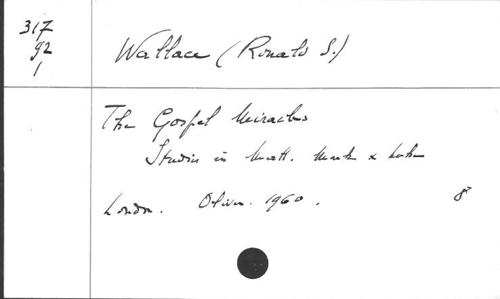 317
92
1
Wallace (Ronald S.)
The Gospel Miracles
Studies in Matt. Mark & Luke
London. Oliver. 1960. 8°